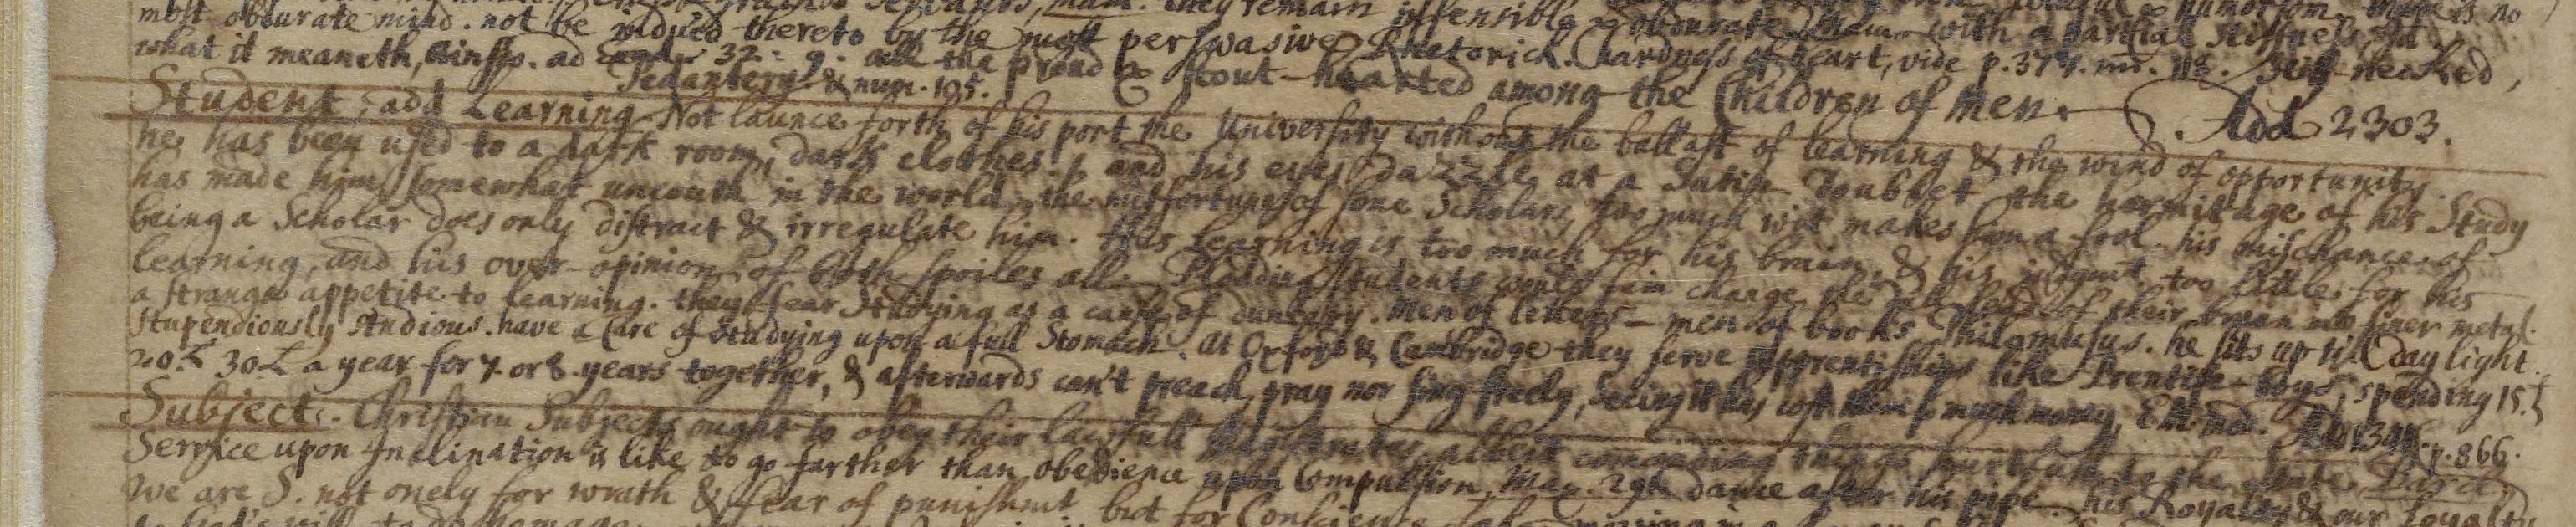 most obdurate mind. not be induced thereto by the most perswasive Rhetorick. hardness of heart, vide p. 374. Stiff-necked,
what it meaneth, Ainsw. ad Exod. 32: 9. all the proud & stout-hearted among the Children of men. Add 2303.
Pedantery & num. 195.
Student, add Learning. Not launce forth of his port the University without the ballast of learning & the wind of opportunity.
he has been used to a dark room, dark clothes, and his eyes dazzle at a Satin Doublet the hermitage of his Study
has made him somewhat uncouth in the world. the misfortune of some Scholars, too much wit makes him a fool. his mischance of
being a Scholar does only distract & irregulate him. His Learning is too much for his brain, & his judgmt too little for his
learning, and his over-opinion of both spoiles all. Plodding Students would fain change the lead of their brain into finer metal.
a strange appetite to learning. they fear Studying as a cause of duncery. men of letters - men of books Philomusus. he sits up till day light.
stupendiously studious. have a care of Studying upon a full Stomach. at Oxford & Cambridge they serve apprentiships like Prentise-boys, spending 15£
20.£ 30£ a year for 7 or 8 years together, & afterwards can't preach, pray nor sing freely, seeing it has cost them so much money, p. 866.
Subject. Christian Subjects ought to obey their lawfull Magistrates, albeit commanding things hurtfull to the State,
Service upon Inclination is like to go farther than obedience upon Compulsion, dance after his pipe. his Royalty & our Loyalty
We are S. not onely for wrath & fear of punishmt but for Conscience
to God's will to do homage